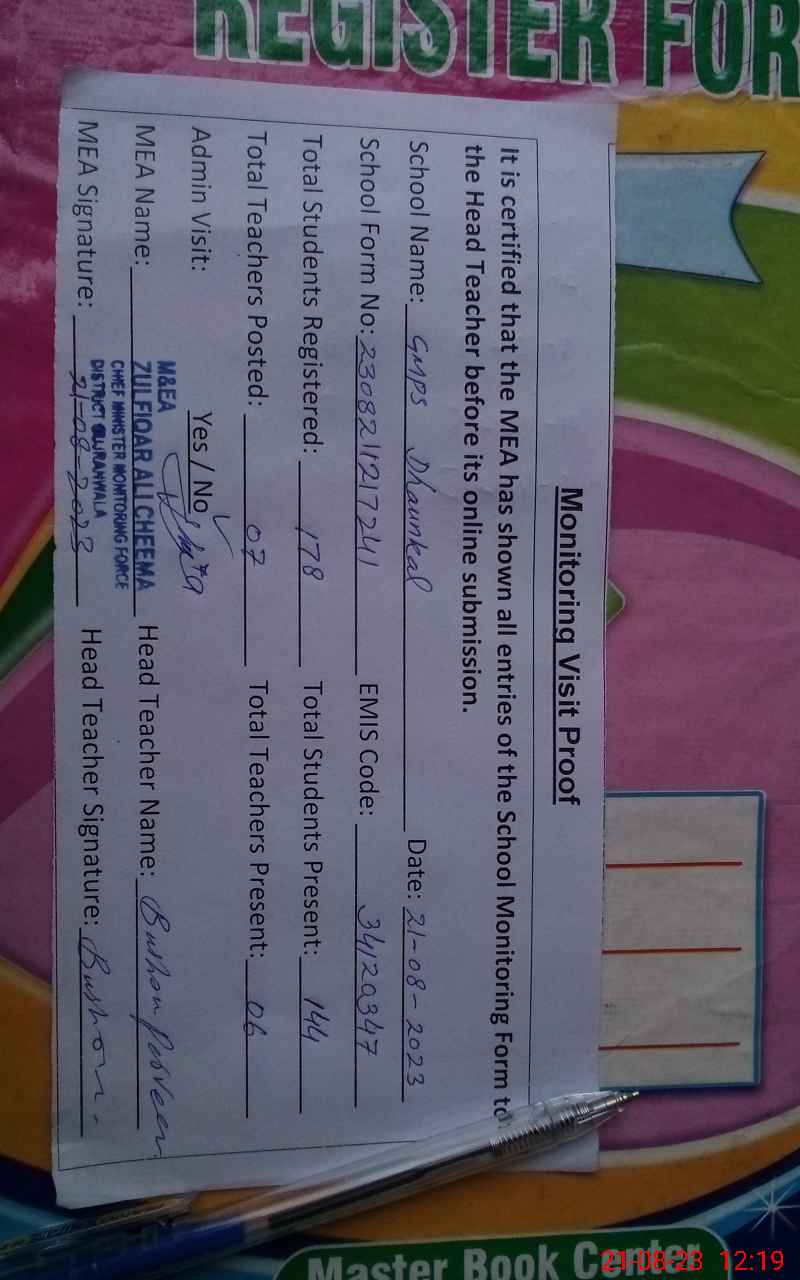 REGISTER FOR
Monitoring Visit Proof
It is certified that the MEA has shown all entries of the School Monitoring Form to
the Head Teacher before its online submission.
School Name: GMPS Dhaunkal Date: 21-08-2023
School Form No: 2308211217241 EMIS Code: 34120347
Total Students Registered: 178 Total Students Present: 144
Total Teachers Posted: 07 Total Teachers Present: 06
Admin Visit: Yes / No
M&EA
MEA Name: ZULFIQAR ALI CHEEMA Head Teacher Name: Bushra Parveen
CHIEF MINISTER MONITORING FORCE
DISTRICT GUJRANWALA
MEA Signature: 21-08-2023 Head Teacher Signature: Bushra
Master Book Center
21-08-23 12:19